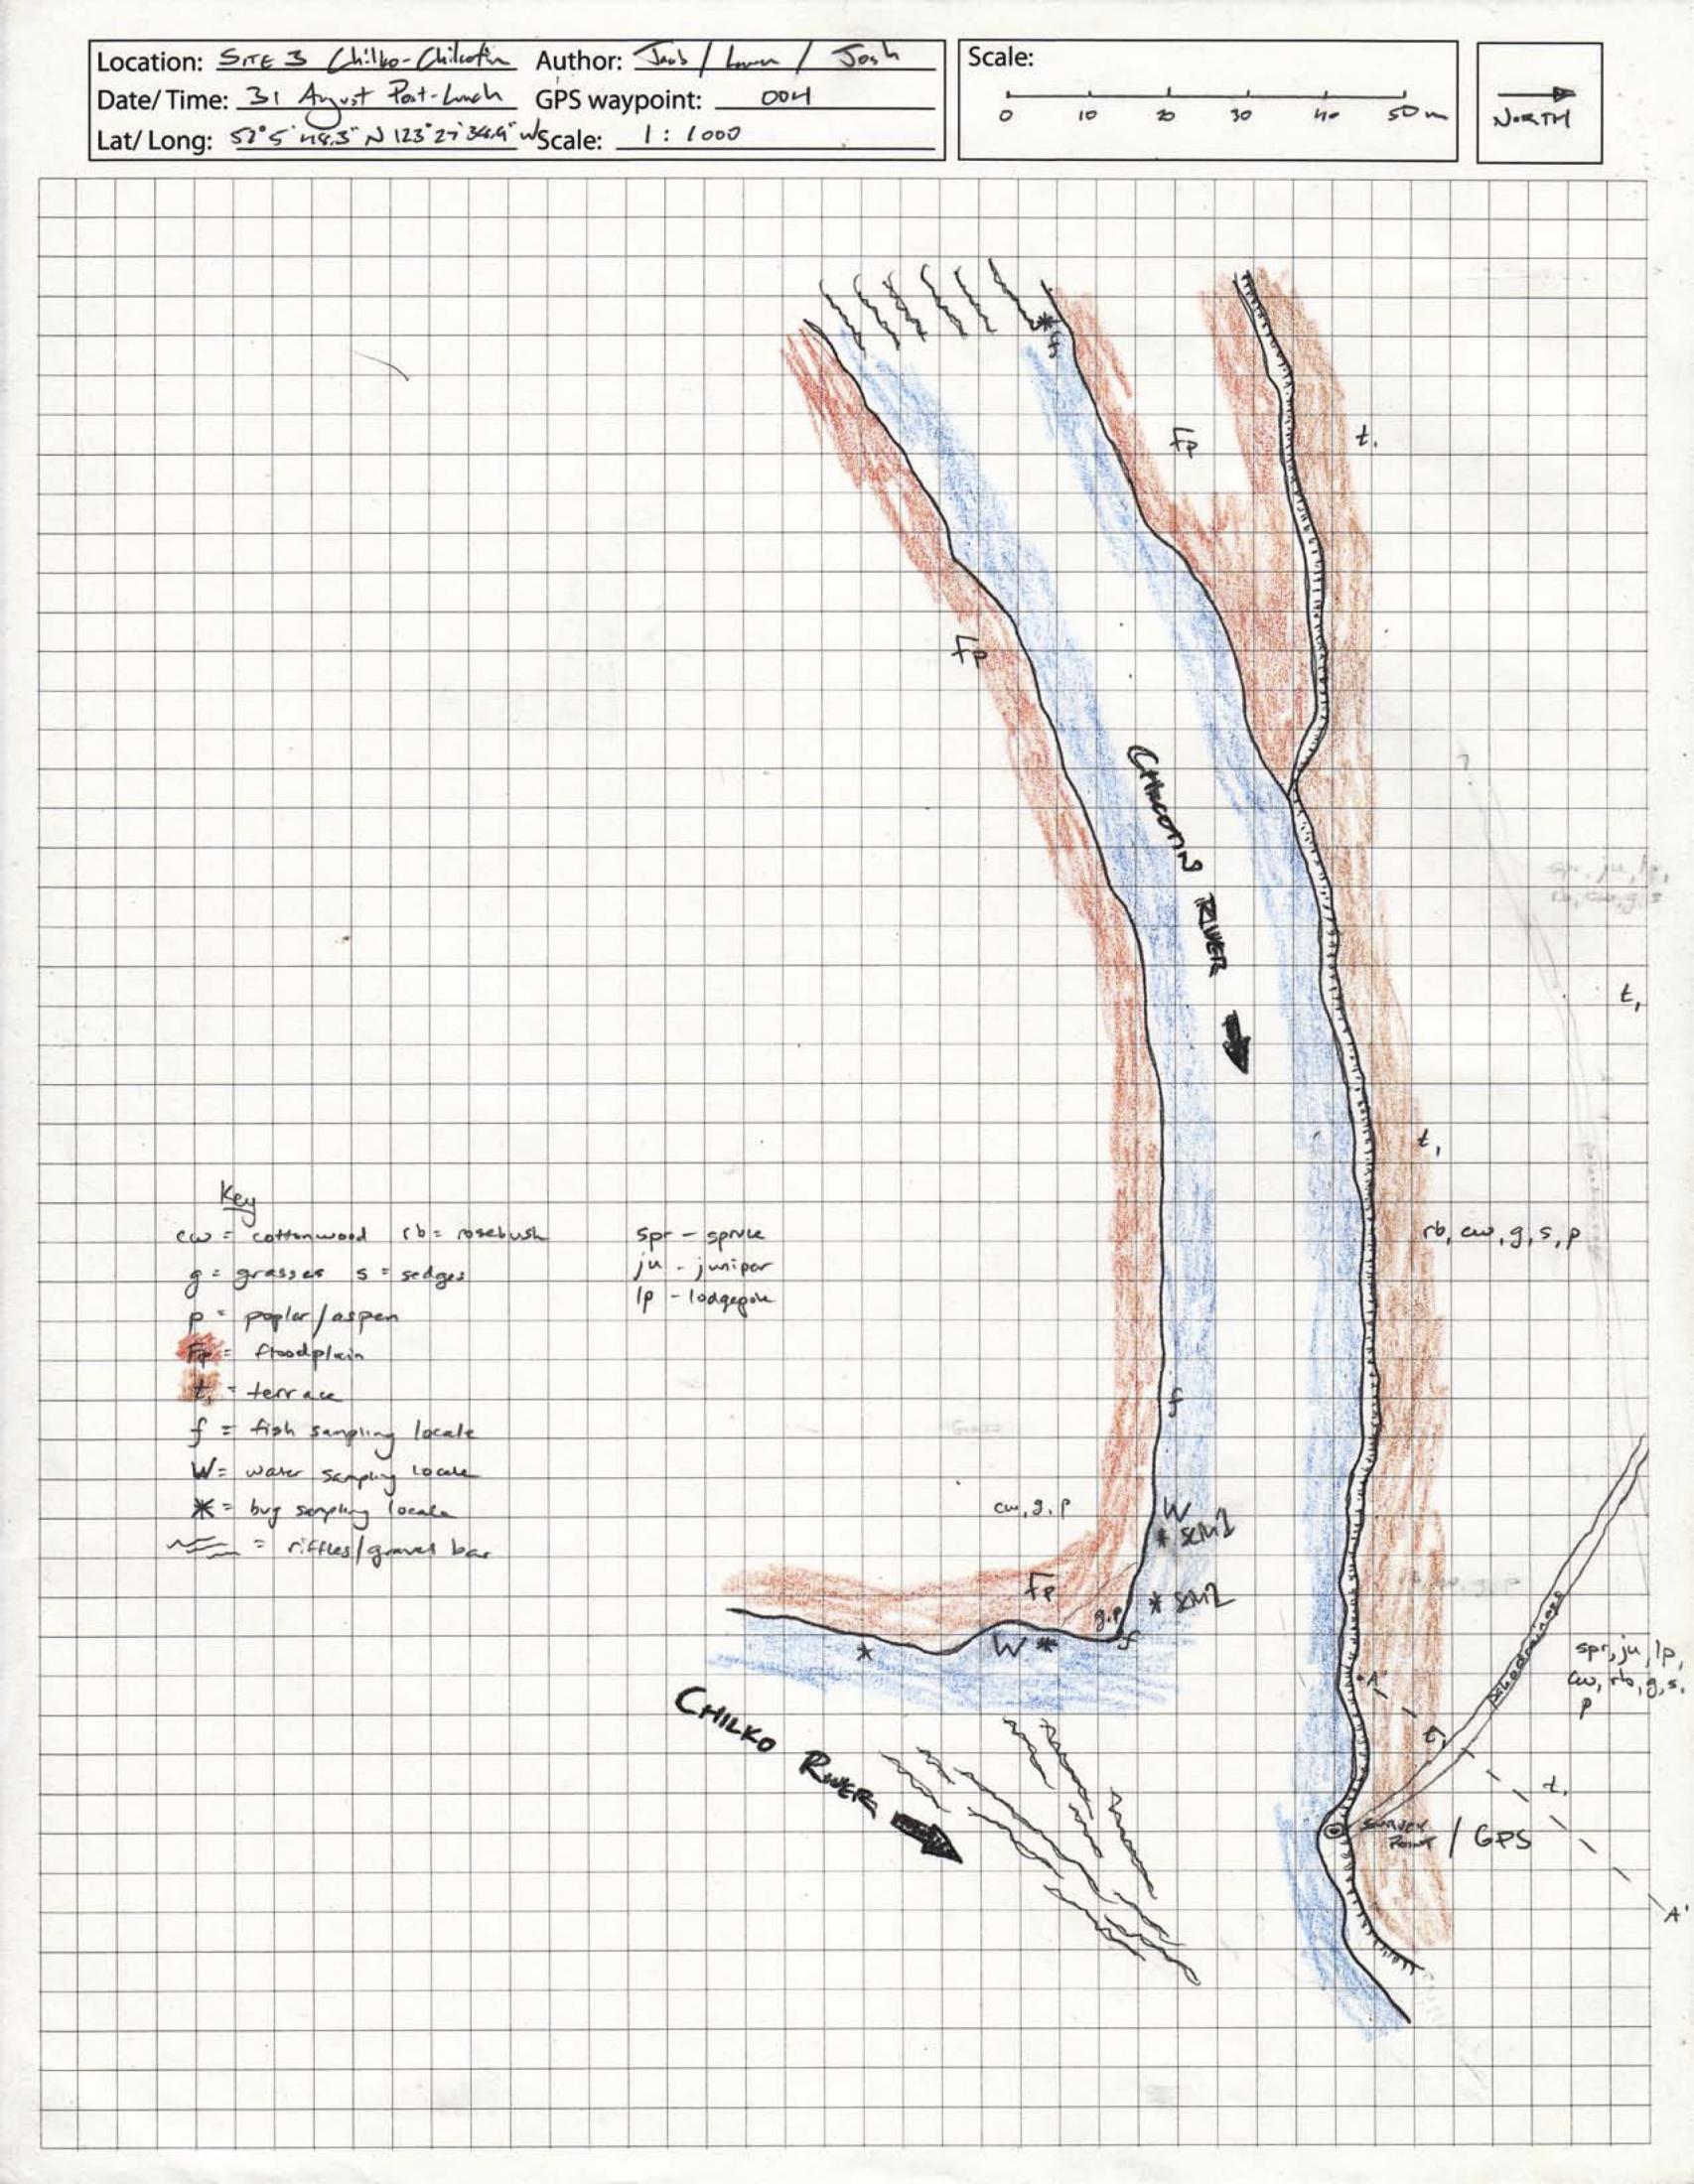 Location: SITE 3 Chilko-Chilcotin Author: / / Josh
Date/Time: 31 August Post-Lunch GPS waypoint: 004
Lat/Long: 52° 5' 48.3" N 123° 27' " W Scale: 1 : 1000
Scale:
0 10 20 30 40 50 m
NORTH
f
Fp
t,
Fp
CHILCOTIN RIVER
spr, ju, lp,
rb, cw, g, s
t,
t,
Key
cw = cottonwood rb = rosebush
g = grasses s = sedges
p = poplar/aspen
Fp = floodplain
t, = terrace
f = fish sampling locale
W = water sampling locale
* = bug sampling locale
= riffles/gravel bar
spr - spruce
ju - juniper
lp - lodgepole
rb, cw, g, s, p
f
cw, g, p
W
* SCM1
Fp
* SCM2
g, p
f
* W *
A
spr, ju, lp,
cw, rb, g, s,
p
t,
t,
CHILKO RIVER
SURVEY POINT / GPS
A'